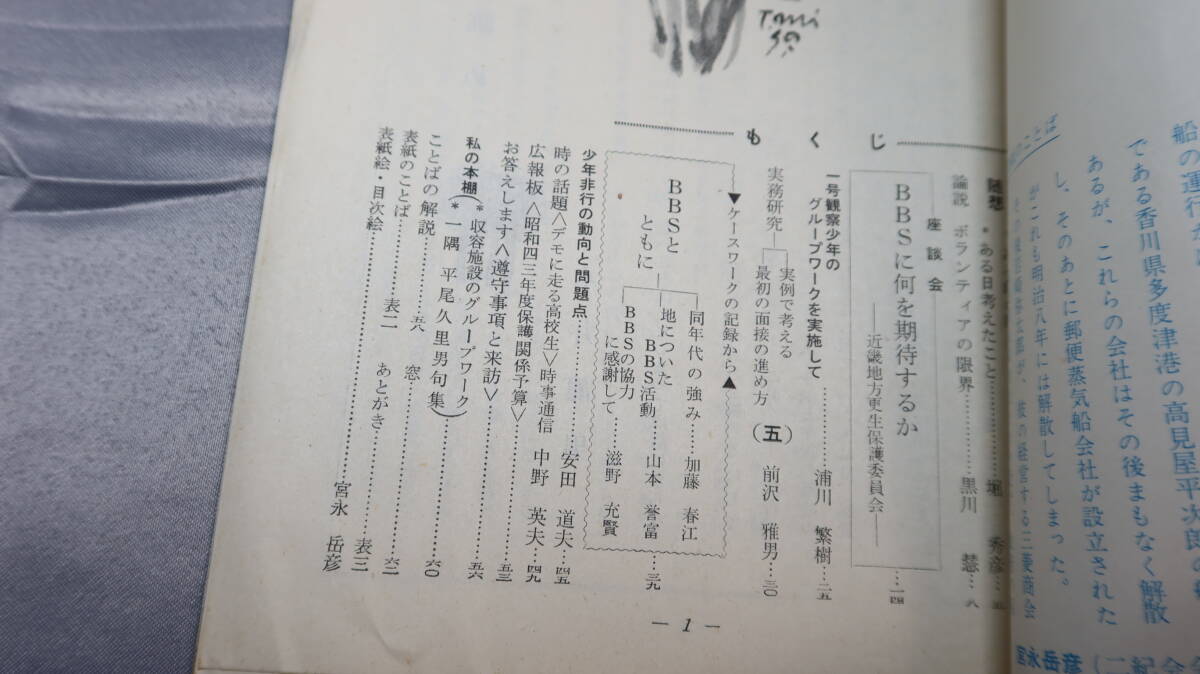 船の運行
である香川県多度津港の高見屋平次郎の
あるが、これらの会社はその後まもなく解散
し、そのあとに郵便蒸気船会社が設立された
がこれも明治八年には解散してしまった。
彼の経営する三菱商会
宮永岳彦(二紀会
もくじ
随想・ある日考えたこと……堀 秀彦
論説 ボランティアの限界……黒川 慧…八
座談会
BBSに何を期待するか
――近畿地方更生保護委員会――…一四
一号観察少年の
グループワークを実施して……浦川 繁樹…二五
実務研究
実例で考える
最初の面接の進め方(五) 前沢 雅男…三〇
▼ケースワークの記録から▲
BBSと
ともに
同年代の強み……加藤 春江
地についた
BBS活動……山本 誉富…三九
BBSの協力
に感謝して……滋野 充賢
少年非行の動向と問題点……安田 道夫…四五
時の話題<デモに走る高校生>時事通信 中野 英夫…四九
広報板<昭和四三年度保護関係予算>……五三
お答えします<遵守事項と来訪>……五六
私の本棚(*収容施設のグループワーク
*一隅 平尾久里男句集)……六〇
ことばの解説……五八 窓……六二
表紙のことば……表二 あとがき……表三
表紙絵・目次絵……宮永 岳彦
― 1 ―